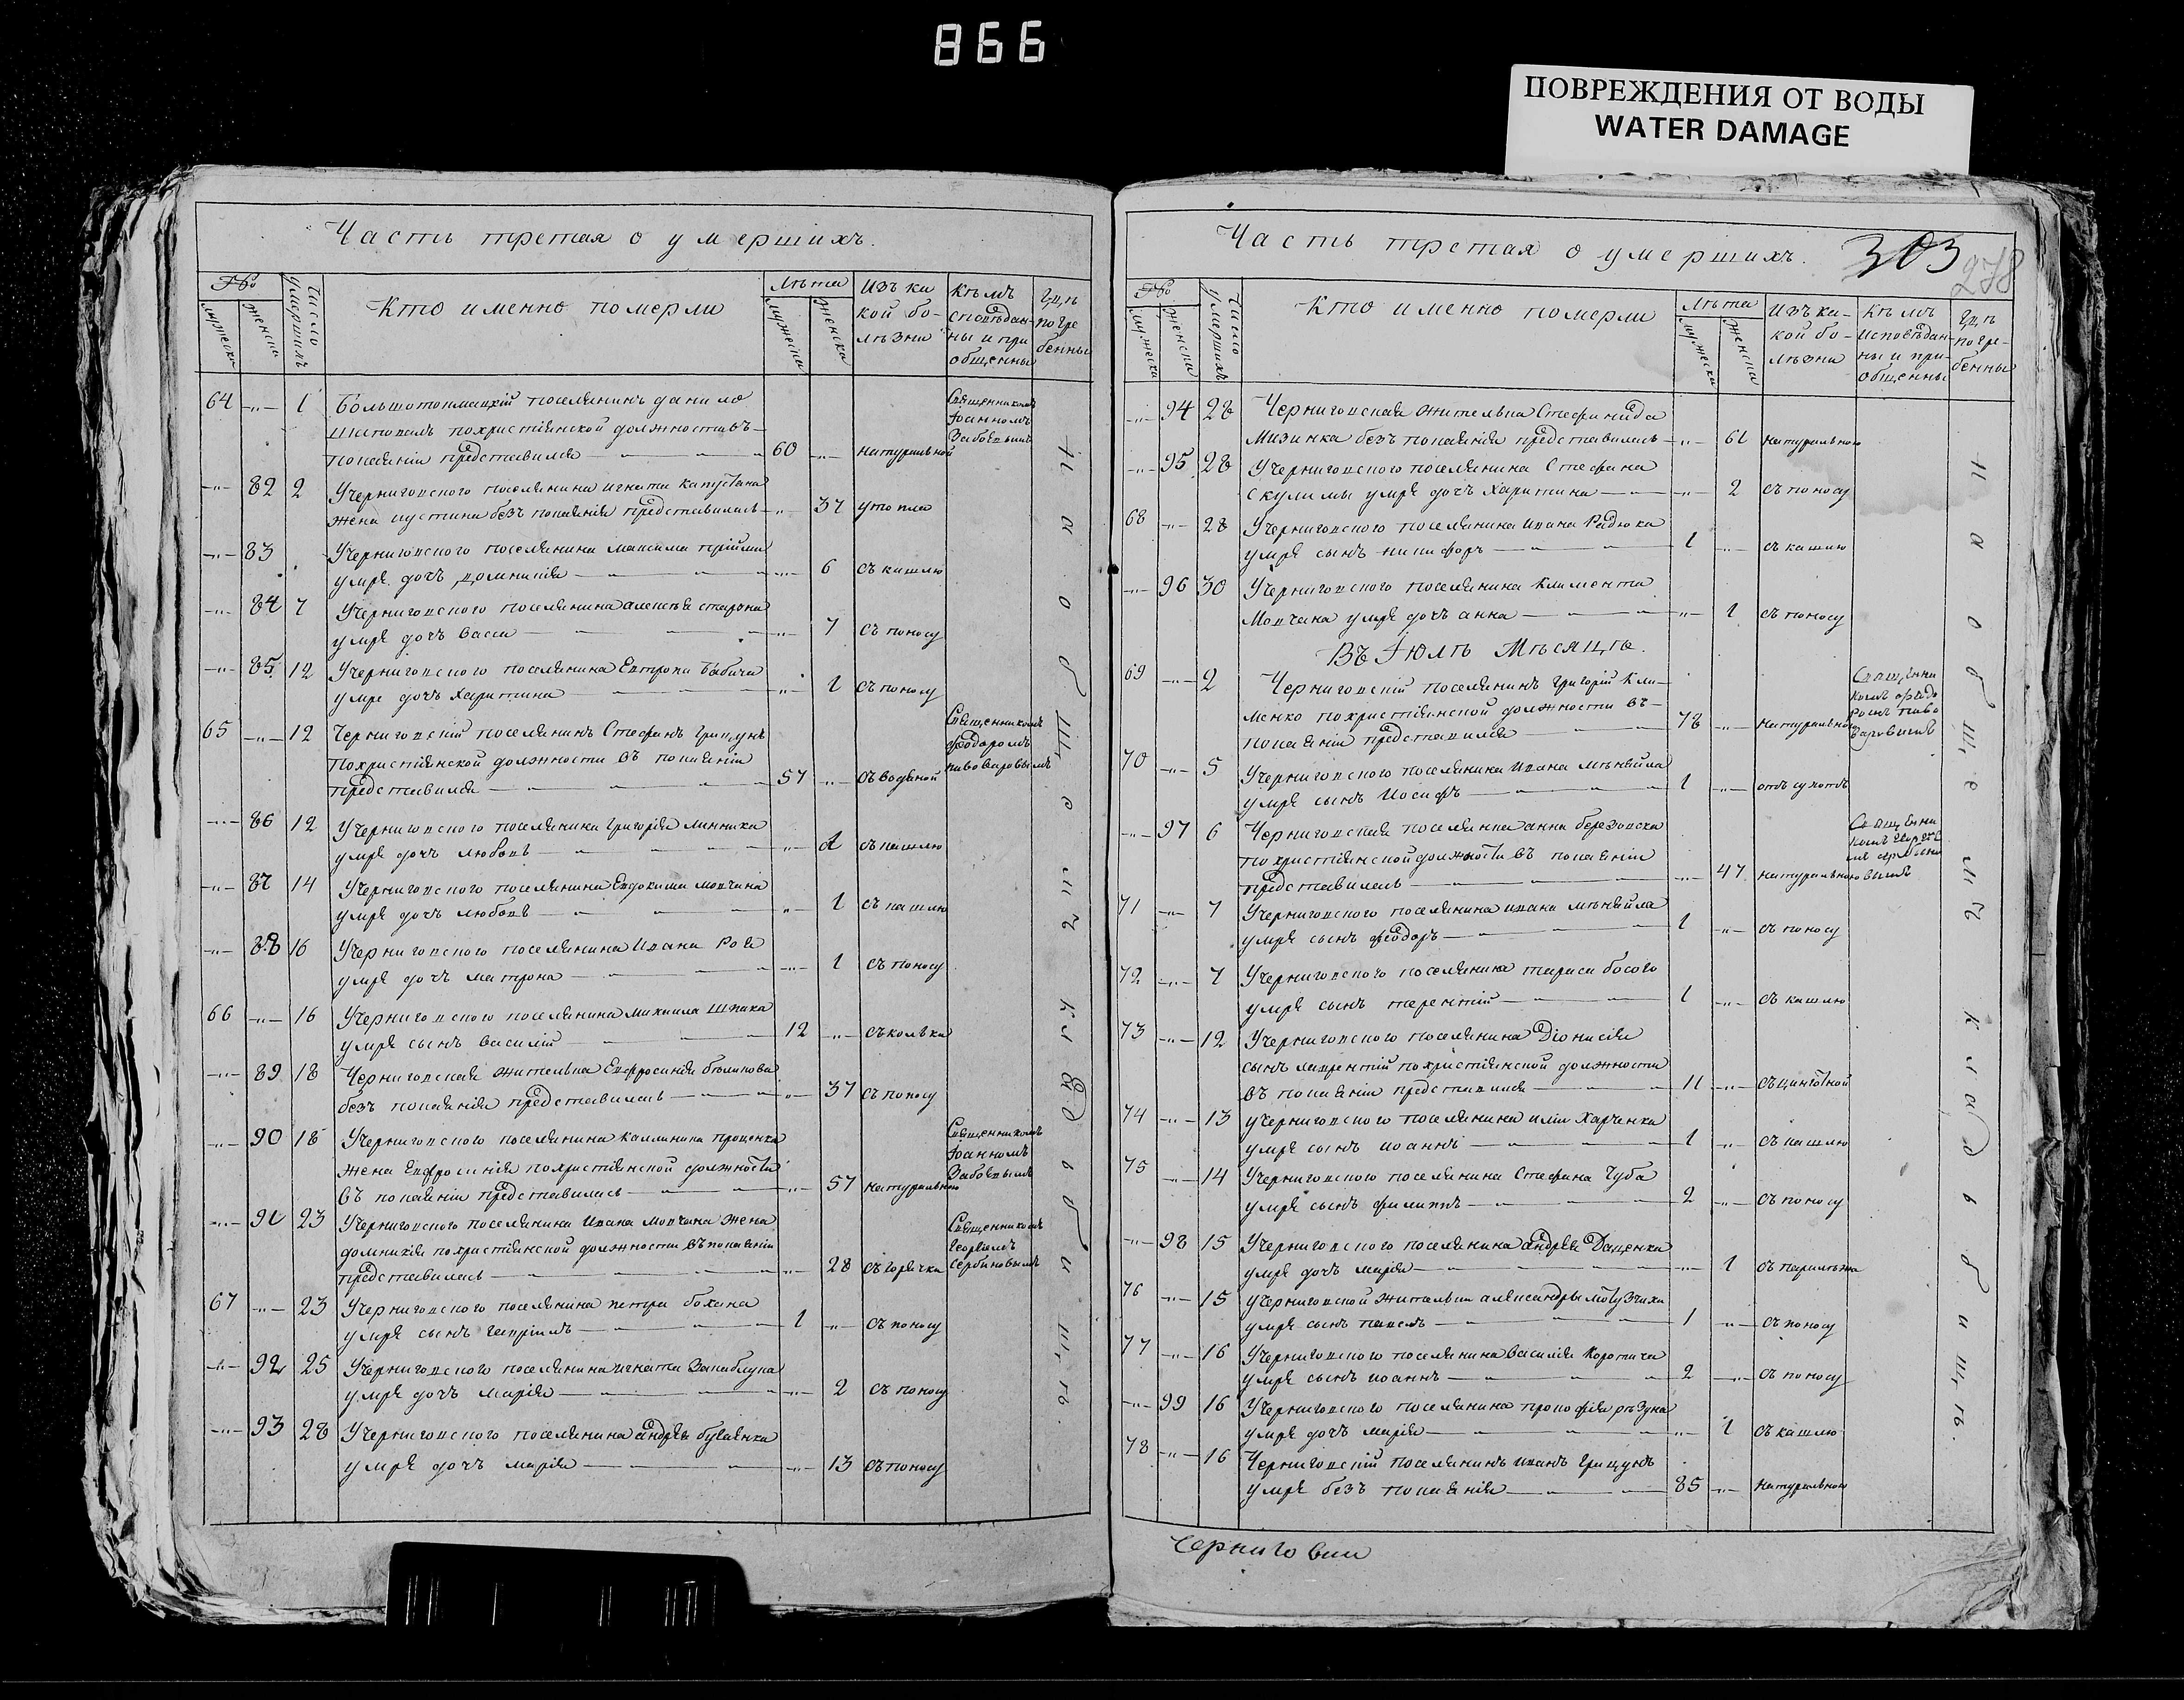 866
ПОВРЕЖДЕНИЯ ОТ ВОДЫ
WATER DAMAGE
Часть третая о умершихъ.
№
мужеска
женска
Число умершихъ
Кто именно померли
Лѣта
мужеска
женска
Изъ ка
кой бо-
лѣзни
Кѣмъ
споведан-
ны и при
общенны
Гдѣ
погре
бенны
64 —„— 1 Большотокмацкій поселянинъ данило
Шаповалъ похристіянской должности въ
покаяніи представился 60 —„— натуральной
Священникомъ
Іоанномъ
Забоевымъ
—„— 82 2 Учерниговского поселянина игната капустяна
жена иустина безъ покаянія представилась —„— 37 утопла
—„— 83 Учерниговского поселянина максима пріймы
умре дочъ домникія —„— 6 съ кашлю
—„— 84 7 Учерниговского поселянина алексѣя старуна
умре дочъ васса —„— 7 съ поносу
—„— 85 12 Учерниговского поселянина Евтропи бабича
умре дочъ Харитина —„— 1 съ поносу
65 —„— 12 Черниговскій поселянинъ Стефанъ Грицунъ
Похристіянской должности въ покаяніи
представился 57 —„— съ водяной
Священникомъ
феодоромъ
пивоваровымъ
—„— 86 12 Учерниговского поселянина Григорія линника
умре дочъ любовь —„— 1 съ кашлю
—„— 87 14 Учерниговского поселянина Евдокима мовчана
умре дочъ любовь —„— 1 съ кашлю
—„— 88 16 Учерниговского поселянина Ивана Роя
умре дочъ матрона —„— 1 съ поносу
66 —„— 16 Учерниговского поселянина михаила Шпака
умре сынъ василій 12 —„— съ колька
—„— 89 18 Черниговская жителька Евфросинія бѣликова
безъ покаянія представилась —„— 37 съ поносу
—„— 90 18 Учерниговского поселянина каллиника проценка
жена Евфросинія похристіянской должности
въ покаяніи представилась —„— 57 натуральною
Священникомъ
Іоанномъ
Забоевымъ
—„— 91 23 Учерниговского поселянина Ивана мовчана жена
домникія похристіянской должности въ покаяніи
представилась —„— 28 съ горячки
Священникомъ
Георгіемъ
сербиновымъ
67 —„— 23 Учерниговского поселянина петра бохана
умре сынъ гавріилъ 1 —„— съ поносу
—„— 92 25 Учерниговского поселянина игната
умре дочъ марія —„— 2 съ поносу
—„— 93 28 Учерниговского поселянина андрея
умре дочъ марія —„— 13 съ поносу
На общемъ кладбищѣ.
Часть третая о умершихъ.
303
278
№
мужеска
женска
Число умершихъ
Кто именно померли
Лѣта
мужеска
женска
Изъ ка-
кой бо-
лѣзни
Кѣмъ
исповѣдан-
ны и при-
общенны
Гдѣ
погре-
бенны
—„— 94 28 Черниговская жителька Стефанида
Мизинка безъ покаянія представилась —„— 61 натуральною
—„— 95 28 Учерниговского поселянина Стефана
Скулимы умре дочъ Харитина —„— 2 съ поносу
68 —„— 28 Учерниговского поселянина ивана Радюка
умре сынъ никифоръ 1 —„— съ кашлю
—„— 96 30 Учерниговского поселянина климента
Мовчана умре дочъ анна —„— 1 съ поносу
Въ Іюлѣ Мѣсяцѣ.
69 —„— 2 Черниговскій поселянинъ григорій Кли-
менко похристіянской должности въ
покаяніи представился 78 —„— натуральною
Священни
комъ феодо
ромъ пиво
варовымъ
70 —„— 5 Учерниговского поселянина ивана
умре сынъ Иосифъ 1 —„— отъ сухотъ
—„— 97 6 Черниговская поселянка анна березовска
похристіянской должности въ покаяніи
представилась —„— 47 натуральною
Священни
комъ георгіе
мъ сербино
вымъ
71 —„— 7 Учерниговского поселянина ивана
умре сынъ феодоръ 1 —„— съ поносу
72 —„— 7 Учерниговского поселянина тараса босого
умре сынъ терентій 1 —„— съ кашлю
73 —„— 12 Учерниговского поселянина Діонисія
сынъ лаврентій похристіянской должности
въ покаяніи представился 11 —„— съ цинготной
74 —„— 13 учерниговского поселянина иліи Харченка
умре сынъ иоаннъ 1 —„— съ кашлю
75 —„— 14 Учерниговского поселянина Стефана Чуба
умре сынъ филиппъ 2 —„— съ поносу
—„— 98 15 Учерниговского поселянина андрея Даценка
умре дочъ марія —„— 1 съ
76 —„— 15 Учерниговской жительки александры
умре сынъ павелъ 1 —„— съ поносу
77 —„— 16 Учерниговского поселянина василія Коротича
умре сынъ иоаннъ 2 —„— съ поносу
—„— 99 16 Учерниговского поселянина прокофія рѣзуна
умре дочъ марія —„— 1 съ кашлю
78 —„— 16 Черниговскій поселянинъ иванъ Грицунъ
умре безъ покаянія 85 —„— натуральною
На общемъ кладбищѣ.
Черниговки